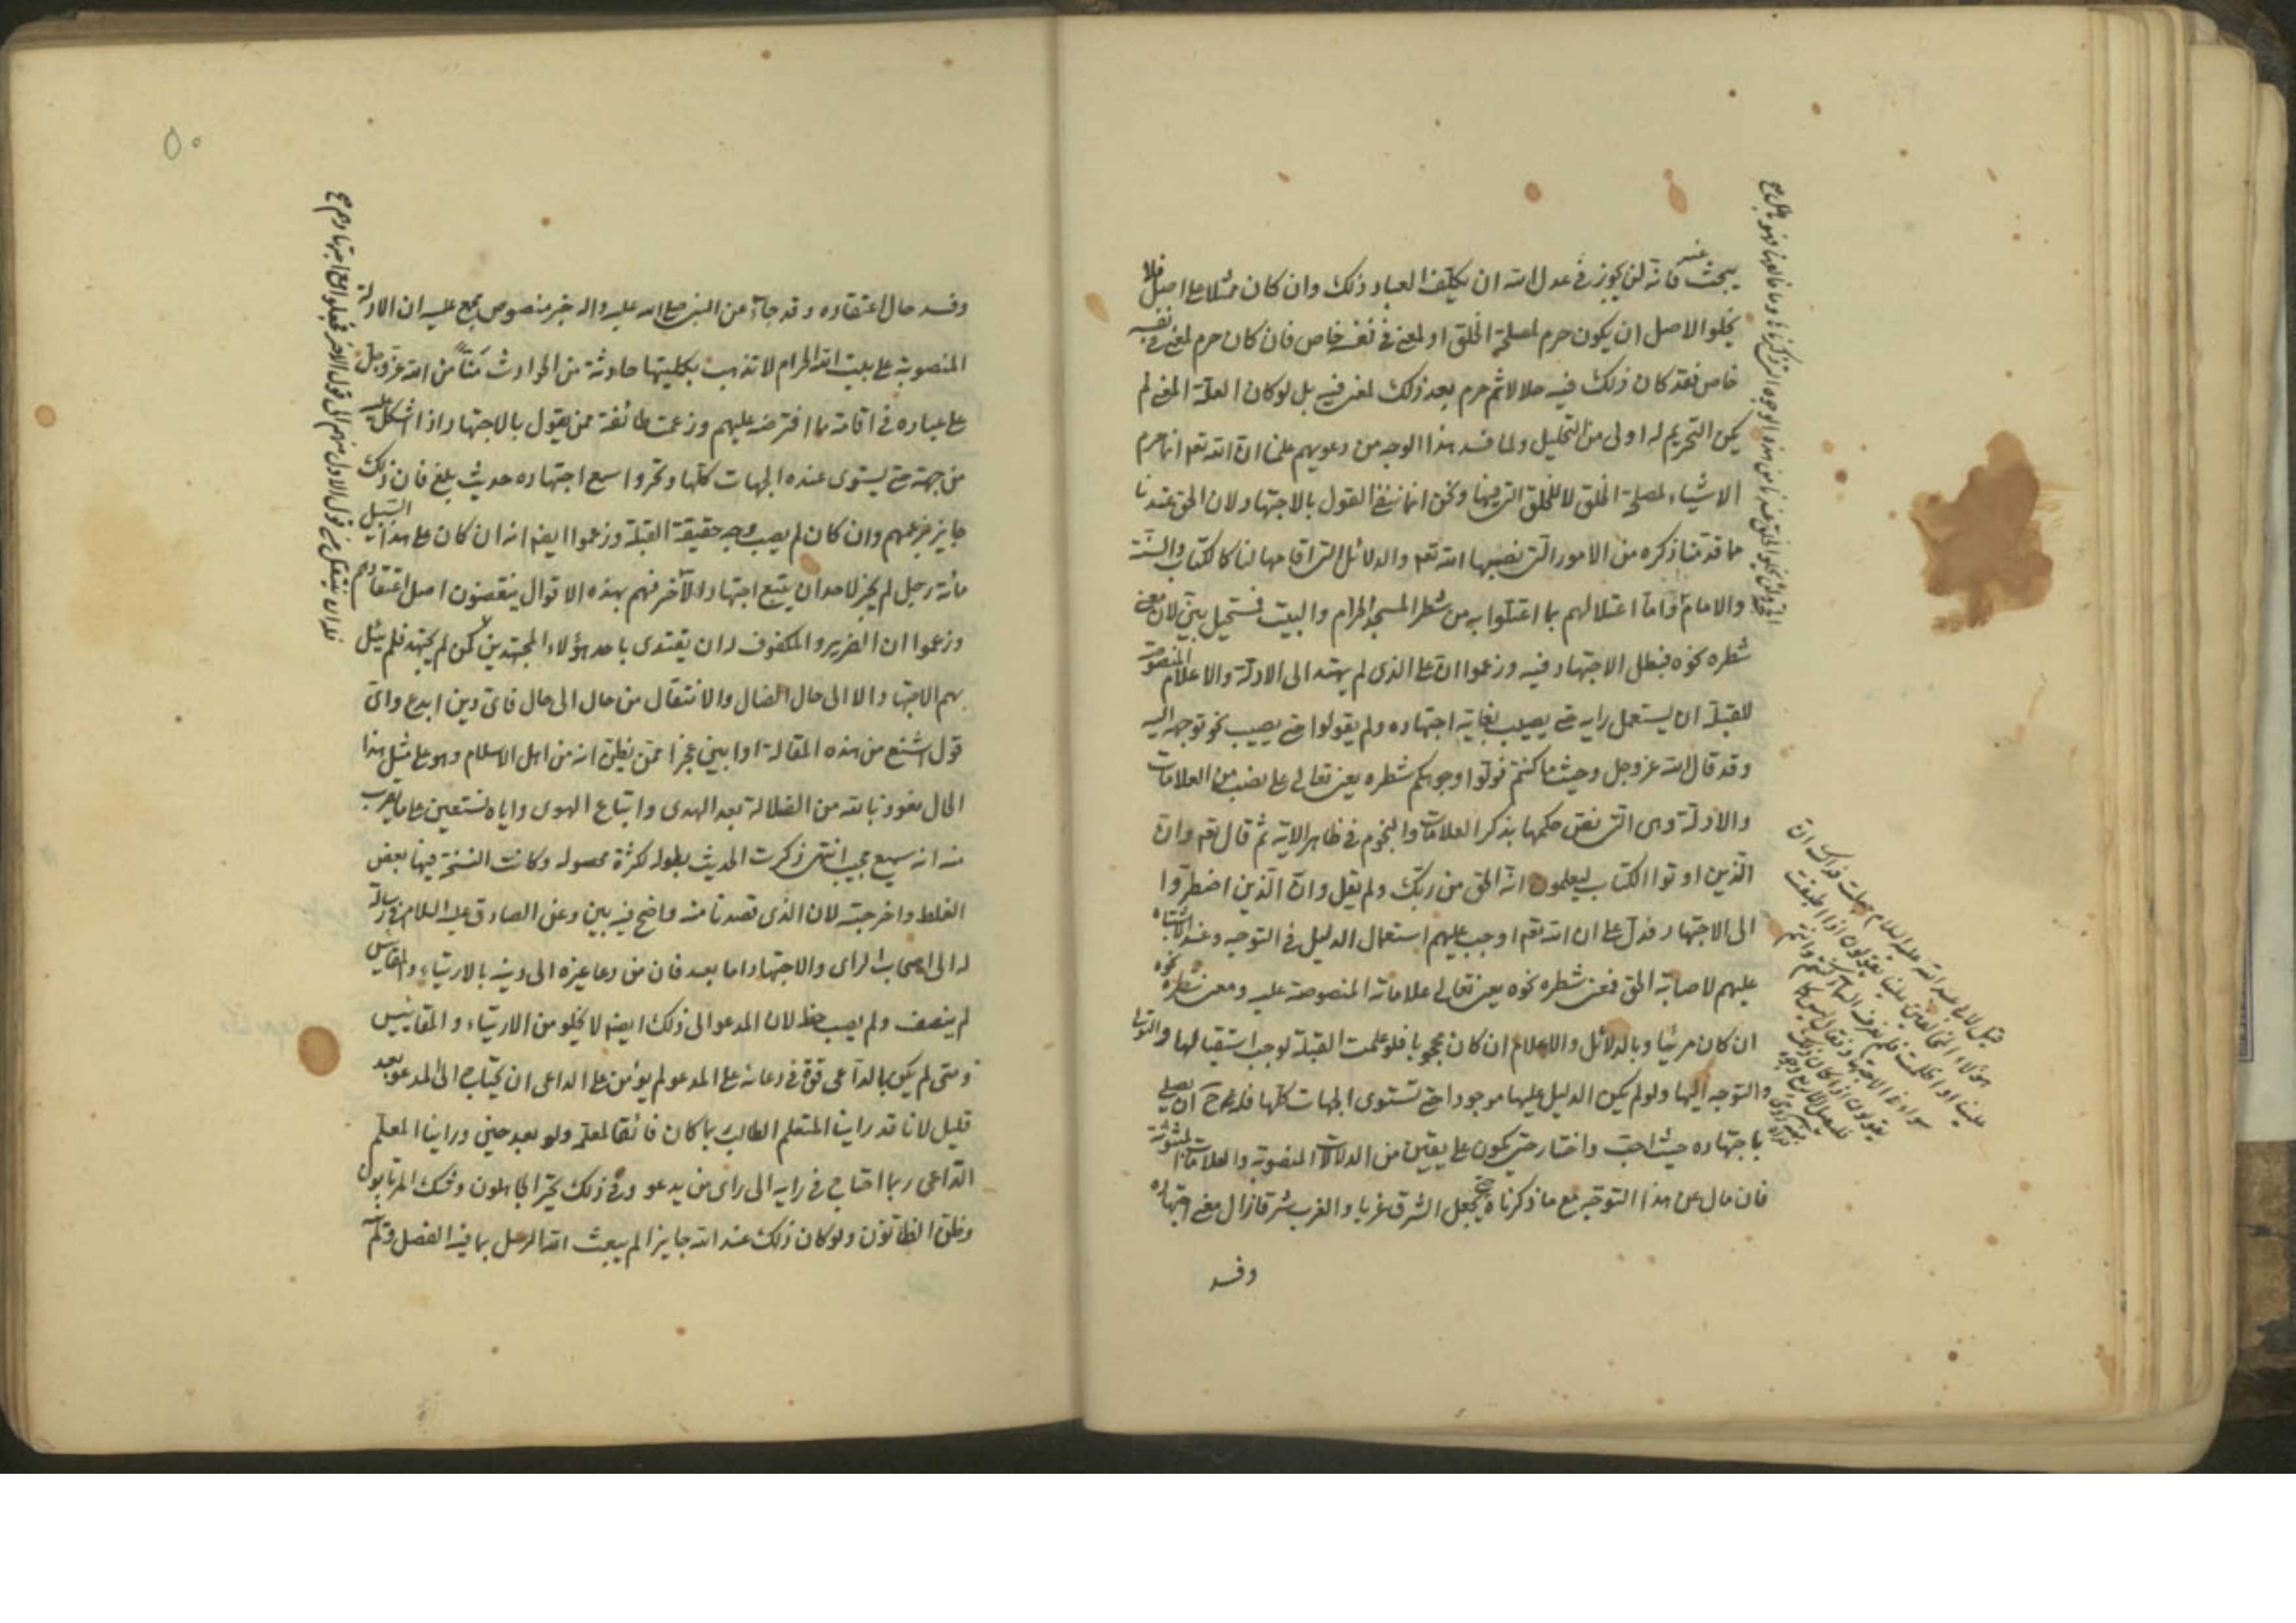 يبحث عنه فانه لن يجوز في عدل الله ان يكلف العباد ذلك وان كان ممثلا على اصل فلا
يخلو الاصل ان يكون حرم لمصلحة الخلق او لمعنى في نفسه خاص فان كان حرم لمعنى في نفسه
خاص فقد كان ذلك فيه حلالا ثم حرم بعد ذلك لمعنى فيه بل لو كان العلة المعنى لم
يكن التحريم له اولى من التحليل ولما فسد هذا الوجه من دعويهم علمنا ان الله تعه انما حرم
الاشياء لمصلحة الخلق لا للخلق التي فيها ونحن انما ننفي القول بالاجتهاد لان الحق عندنا
ما قدمنا ذكره من الامور التي نصبها الله تعه والدلائل التي اقامها لنا كالكتاب والسنة
والامام واما اعتلالهم بما اعتلوا به من شطر المسجد الحرام والبيت فمستحيل بين لان معنى
شطره نحوه فبطل الاجتهاد فيه وزعموا ان على الذي لم يهتد الى الادلة والاعلام المنصوبة
للقبلة ان يستعمل رايه حتى يصيب بغاية اجتهاده ولم يقولوا حتى يصيب نحو توجه اليه
وقد قال الله عز وجل وحيث ما كنتم فولوا وجوهكم شطره يعني تعالى على نصب من العلامات
والادلة وهي التي نص حكمها بذكر العلامات والنجوم في ظاهر الاية ثم قال تعه وان
الذين اوتوا الكتاب ليعلمون انه الحق من ربك ولم يقل وان الذين اضطروا
الى الاجتهاد فدل على ان الله تعه اوجب عليهم استعمال الدليل في التوجه وعند الاشتباه
عليهم لاصابة الحق فمعنى شطره نحوه يعني تعالى علاماته المنصوبة عليه ومعنى شطره نحوه
ان كان مرئيا وبالدلائل والاعلام ان كان محجوبا فلو علمت القبلة لوجب استقبالها والتولي
والتوجه اليها ولو لم يكن الدليل عليها موجودا حتى تستوى الجهات كلها فله ح ان يصلي
باجتهاده حيث احب واختار حتى يكون على يقين من الدلالات المنصوبة والعلامات المثبوتة
فان مال عن هذا التوجه مع ما ذكرناه حتى يجعل الشرق غربا والغرب شرقا زال معنى اجتهاده
وفسد
قيل لابي عبد الله عليه السلام جعلت فداك ان
هؤلاء المخالفين علينا يقولون اذا اطبقت
علينا او اظلمت فلم نعرف السماء كنتم وانتم
سواء في الاجتهاد فقال ليس كما
يقولون اذا كان ذلك
فليصل لاربع وجوه
٥٠
وفسد حال اعتقاده وقد جاء عن النبي صلى الله عليه واله خبر منصوص مجمع عليه ان الادلة
المنصوبة على بيت الله الحرام لا تذهب بكليتها حادثة من الحوادث منّا من الله عز وجل
على عباده في اقامة ما افترضه عليهم وزعمت طائفة ممن يقول بالاجتهاد اذا اشكل عليه
من جهة حتى يستوى عنده الجهات كلها وتحروا سع اجتهاده حديث بلغ فان ذلك
جايز بزعمهم وان كان لم يصب وجه حقيقة القبلة وزعموا ايضا انه ان كان على هذا السبيل
مائة رجل لم يجز لاحد ان يتبع اجتهاد الآخر فهم بهذه الاقوال ينقضون اصل اعتقادهم
وزعموا ان الضرير والمكفوف له ان يقتدى باحد هؤلاء المجتهدين كمن لم يجتهد فلم يئل
بهم الاجتهاد الا الى حال الضلال والانتقال من حال الى حال فاى دين ابدع واى
قول اشنع من هذه المقالة او ابين عجزا ممن يظن انه من اهل الاسلام وهو على مثل هذا
الحال نعوذ بالله من الضلالة بعد الهدى واتباع الهوى واياه نستعين على ما يقرب
منه انه سميع مجيب انتهى ذكرت الحديث بطوله لكثرة محصوله وكانت النسخة فيها بعض
الغلط واخرجته لان الذي قصدنا منه واضح فيه بين وعن الصادق عليه السلام في رسالة
له الى اصحاب الراى والاجتهاد اما بعد فان من دعا غيره الى دينه بالارتياء والمقاييس
لم ينصف ولم يصب حظه لان المدعو الى ذلك ايضا لا يخلو من الارتياء والمقاييس
ومتى لم يكن بالداعى قوة في دعائه على المدعو لم يؤمن على الداعى ان يحتاج الى المدعو بعد
قليل لانا قد راينا المتعلم الطالب ربما كان فائقا لمعلم ولو بعد حين وراينا المعلم
الداعى ربما احتاج في رايه الى راى من يدعو وفي ذلك تحير الجاهلون وشك المرتابون
وظن الظانون ولو كان ذلك عند الله جايزا لم يبعث الله الرسل بما فيه الفصل ولم